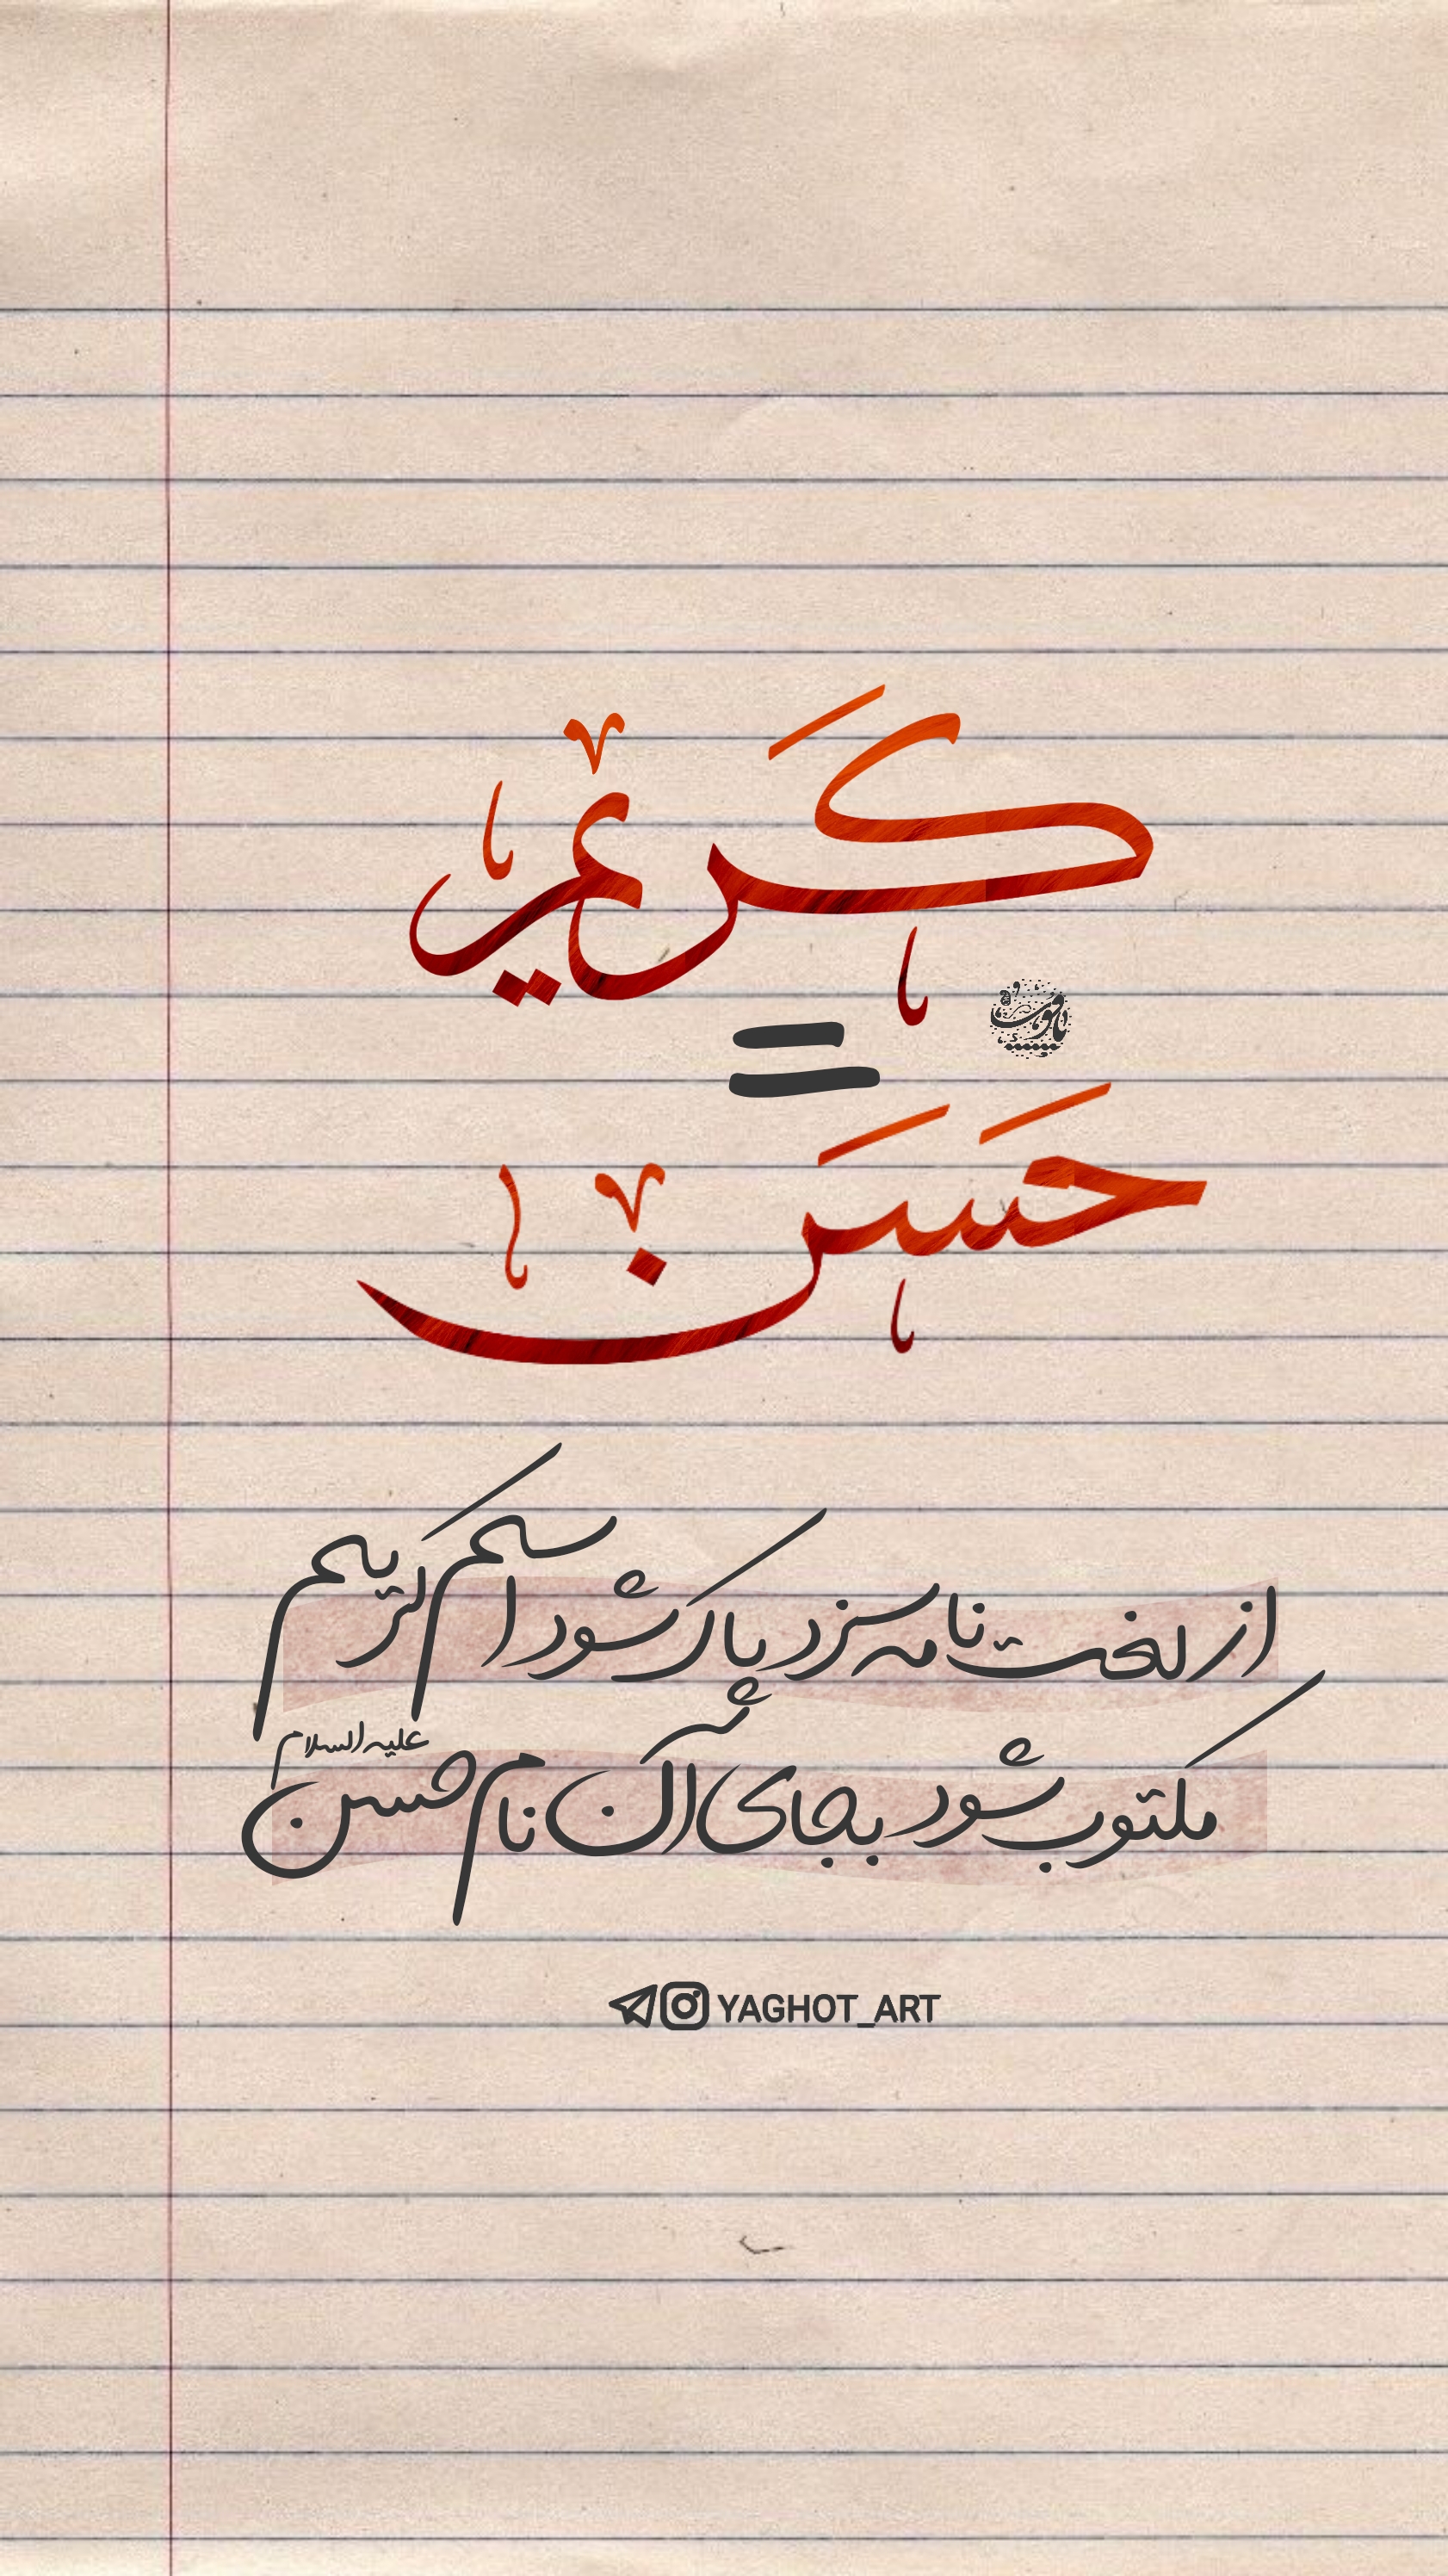 کَریم
=
حَسَن
یاقوت
از لغت نامه سزد پاک شود اسم کریم
مکتوب شود بجای آن نام حسن علیه السلام
YAGHOT_ART